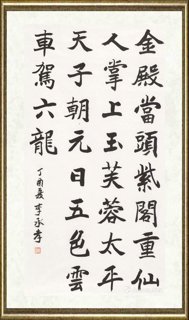 金殿當頭紫閣重仙
人掌上玉芙蓉太平
天子朝元日五色雲
車駕六龍
丁酉夏李永孝